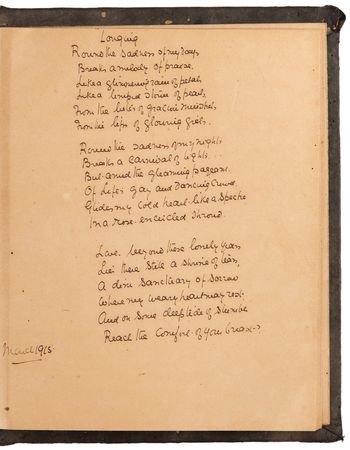 Longing
Round the sadness of my days
Breaks a melody of praise,
Like a glimmering rain of petals
Like a limpid storm of pearls,
From the lutes of minstrels,
From the lips of glowing girls.
Round the sadness of my nights
Breaks a carnival of lights...
But amid the gleaming pageant
Of life's gay and dancing crowd,
Glides my cold heart like a spectre
In a rose-encircled shroud.
Love, beyond these lonely years
Lies there still a shrine of tears,
A dim sanctuary of sorrow
Where my weary heart may rest
And on some deep tide of slumber
Reach the comfort of your breast?
March 1915.